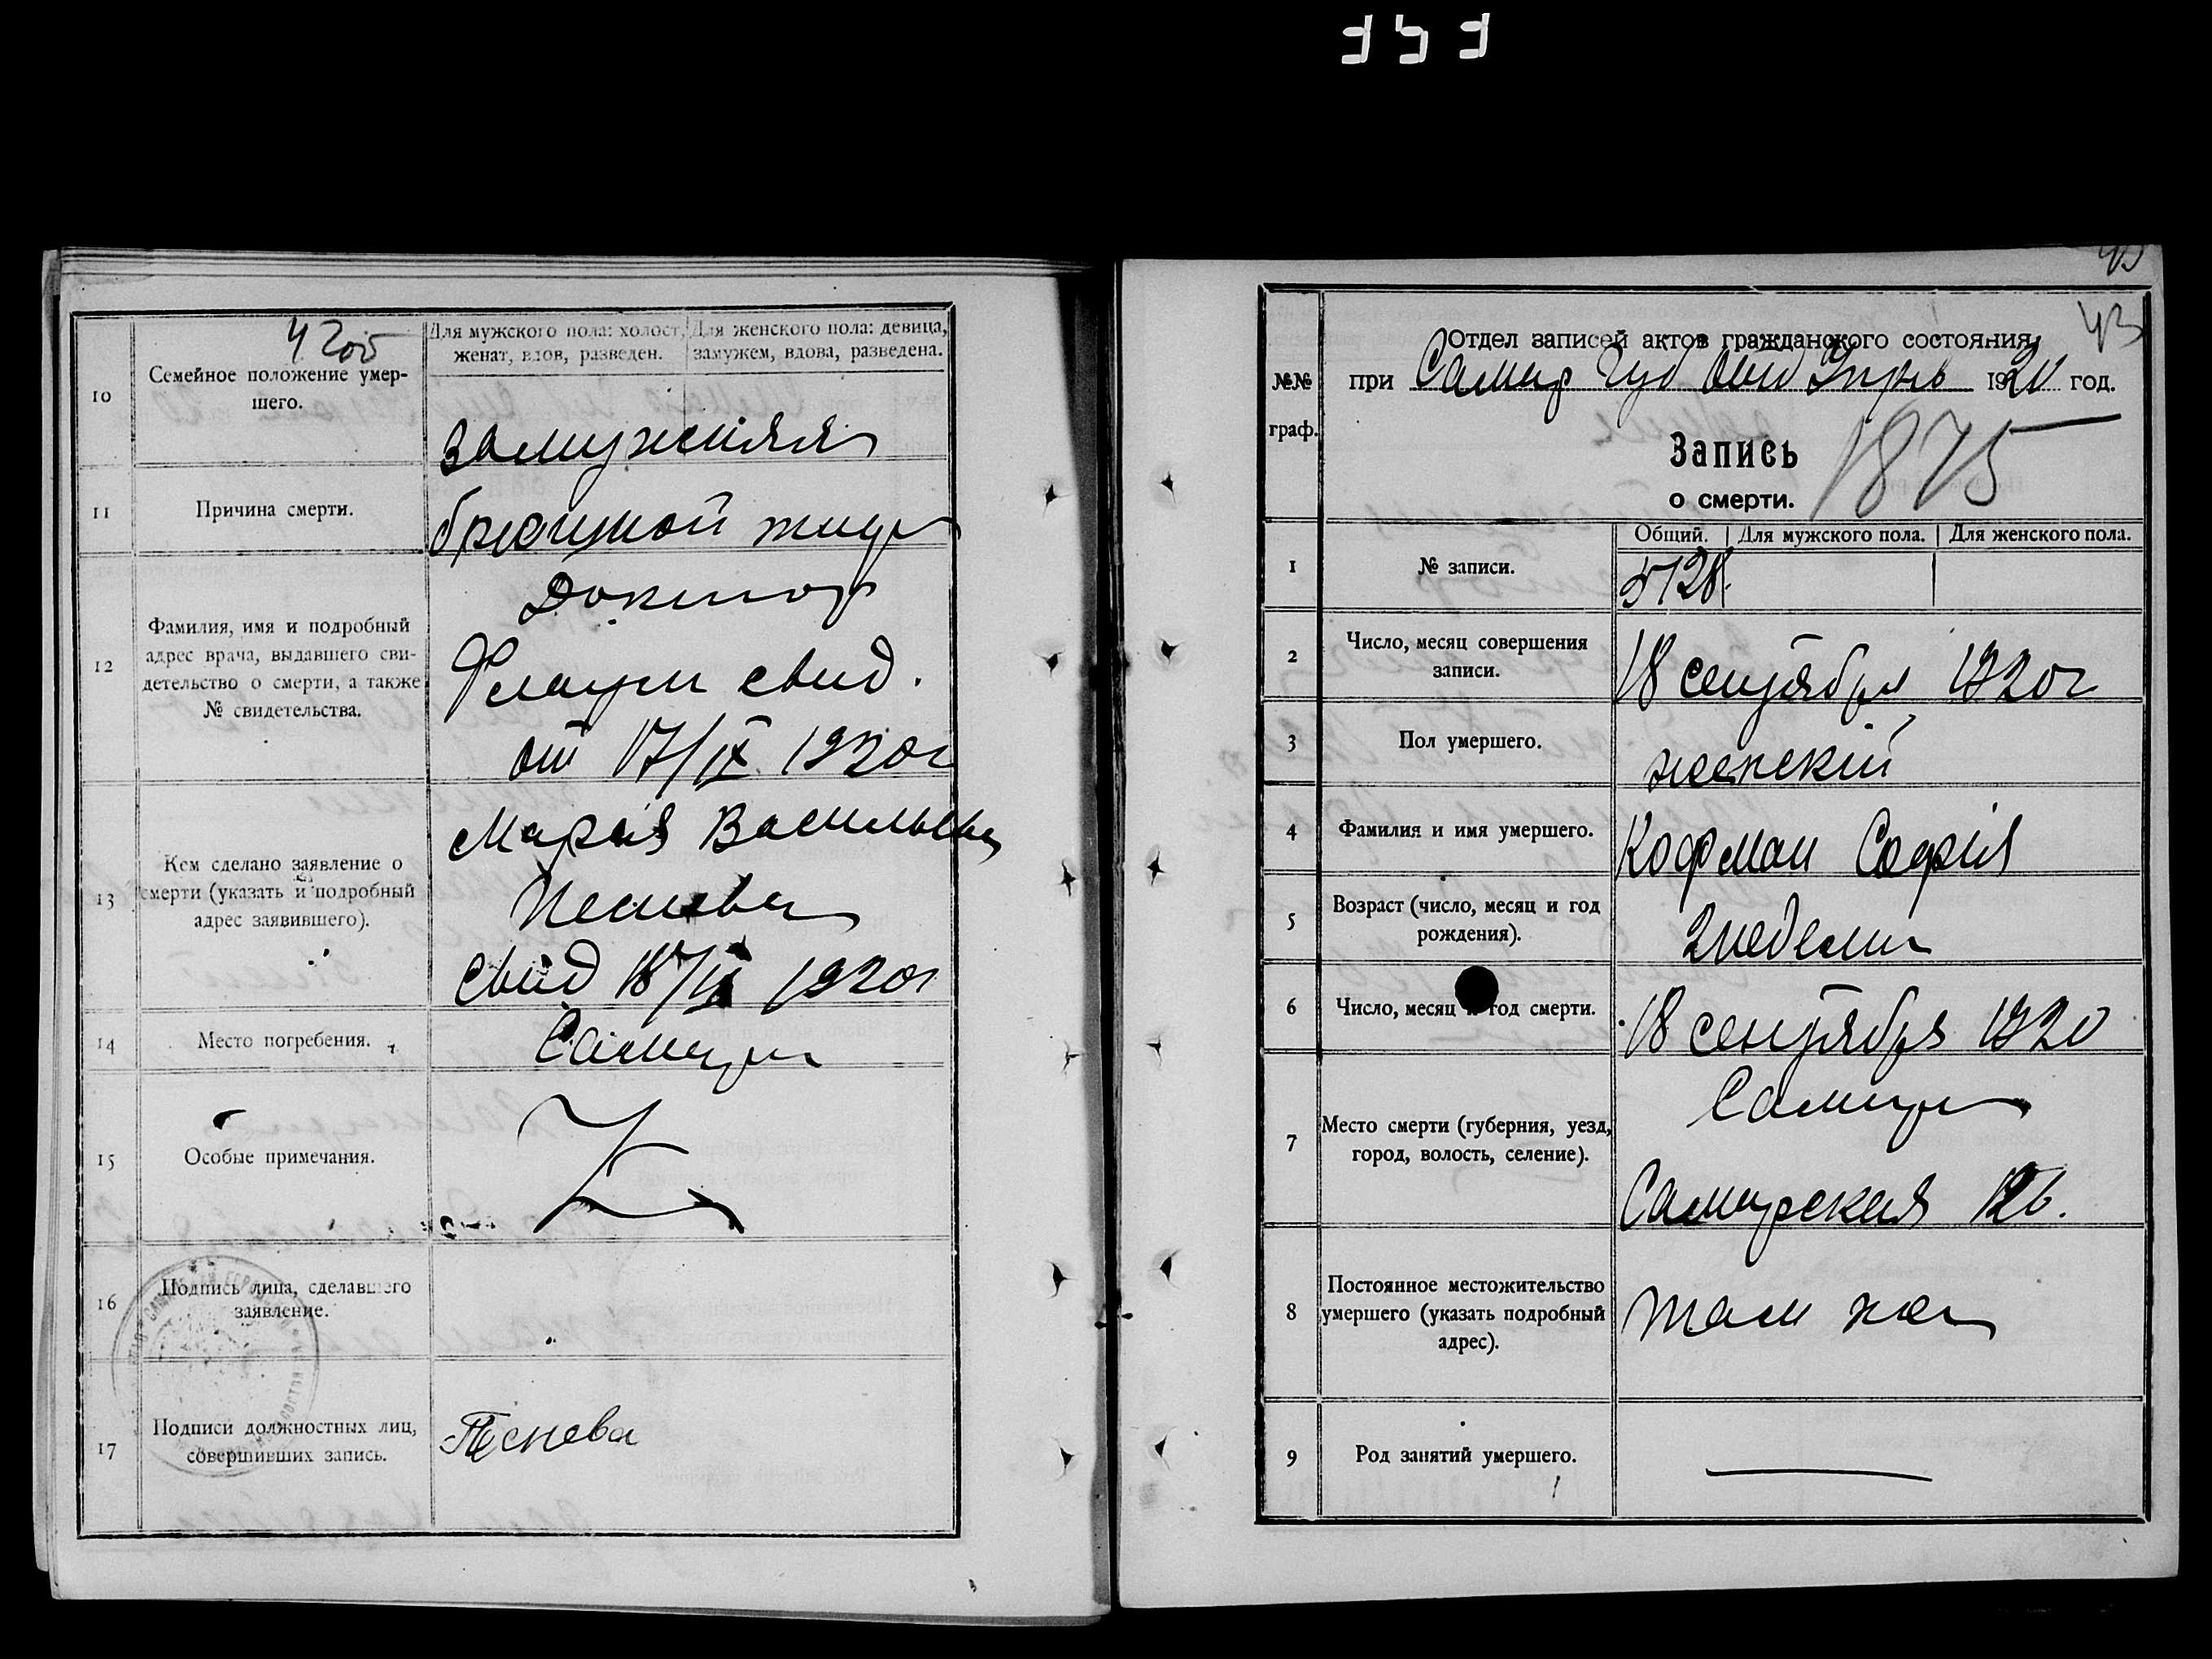 42об
10
Семейное положение умер-
шего.
Для мужского пола: холост,
женат, вдов, разведен.
Для женского пола: девица,
замужем, вдова, разведена.
замужняя
11
Причина смерти.
брюшной тиф
12
Фамилия, имя и подробный
адрес врача, выдавшего сви-
детельство о смерти, а также
№ свидетельства.
Доктор
свид.
от 17/IX 1920г
13
Кем сделано заявление о
смерти (указать и подробный
адрес заявившего).
Мария Васильевна
свид 18/IX 1920г
14
Место погребения.
Самара
15
Особые примечания.
16
Подпись лица, сделавшего
заявление.
17
Подписи должностных лиц,
совершивших запись.
43
43
№№
граф.
Отдел записей актов гражданского состояния,
при Самар Губ Отд Упр 1920 год.
Запись
о смерти.
1875
Общий. Для мужского пола. Для женского пола.
1
№ записи.
5128
2
Число, месяц совершения
записи.
18 сентября 1920г
3
Пол умершего.
женскiй
4
Фамилия и имя умершего.
Кофман София
5
Возраст (число, месяц и год
рождения).
2 недели
6
Число, месяц и год смерти.
18 сентября 1920
7
Место смерти (губерния, уезд,
город, волость, селение).
Самара
Самарская 126.
8
Постоянное местожительство
умершего (указать подробный
адрес).
там же
9
Род занятий умершего.